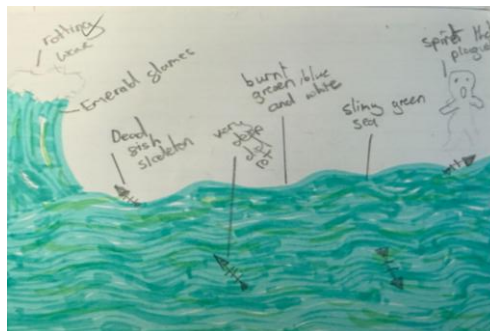 rotting
wave
Emerald flames
Dead
fish
skeleton
very
deep
burnt
green/blue
and white
slimy green
sea
spirit that
plagued